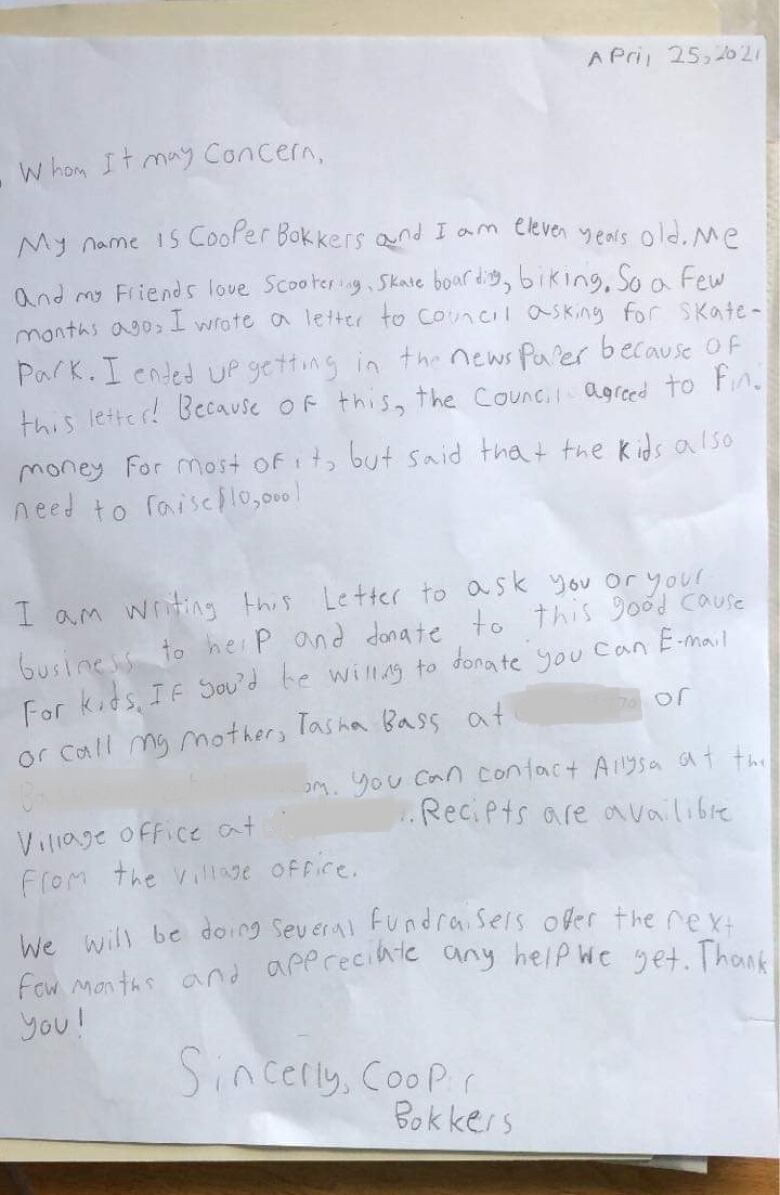 April 25, 2021
Whom It may Concern,
My name is Cooper Bokkers and I am eleven years old. Me
and my Friends love Scootering, Skate boarding, biking. So a Few
months ago, I wrote a letter to council asking for Skate-
Park. I ended up getting in the newspaper because of
this letter! Because of this, the Council agreed to Fin
money For most of it, but said that the kids also
need to raise $10,000!
I am writing this Letter to ask you or your
business to help and donate to this good cause
For kids. IF you'd be willing to donate you can E-mail
or call my mother, Tasha Bass at or
om. you can contact Allysa at the
Village office at . Recipts are availible
From the village office.
We will be doing several fundraisers ofer the next
Few months and appreciate any help we get. Thank
you!
Sincerly, Cooper
Bokkers